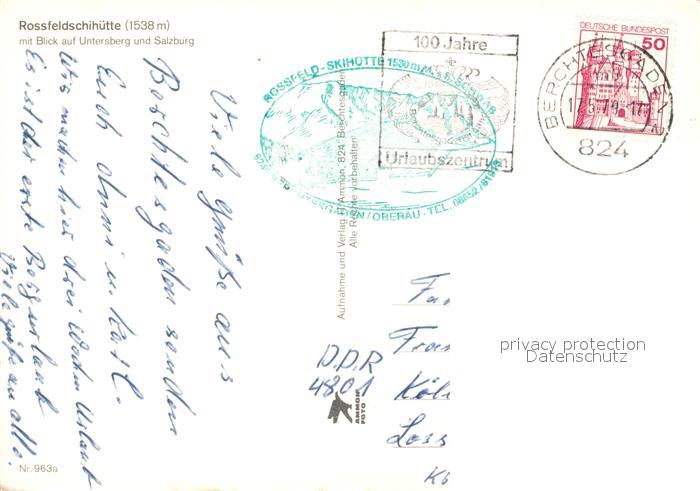 Rossfeldschihütte (1538 m)
mit Blick auf Untersberg und Salzburg
Viele Grüße aus
Berchtesgaden senden
Euch ohmi u. Karl.
Wir machen hier drei Wochen Urlaub
Es ist der erste Bergurlaub
Viele Grüße an alle.
Nr. 963a
Aufnahme und Verlag H. Ammon, 824 Berchtesgaden
Alle Rechte vorbehalten
ROSSFELD-SKIHÜTTE 1530 m
BERCHTESGADEN/OBERAU - TEL. 08652/
100 Jahre
Urlaubszentrum
DEUTSCHE BUNDESPOST
50
BERCHTESGADEN 1
824
Fa
Fra
D.D.R
4801
Köl
Loss
AMMON
FOTO
privacy protection
Datenschutz